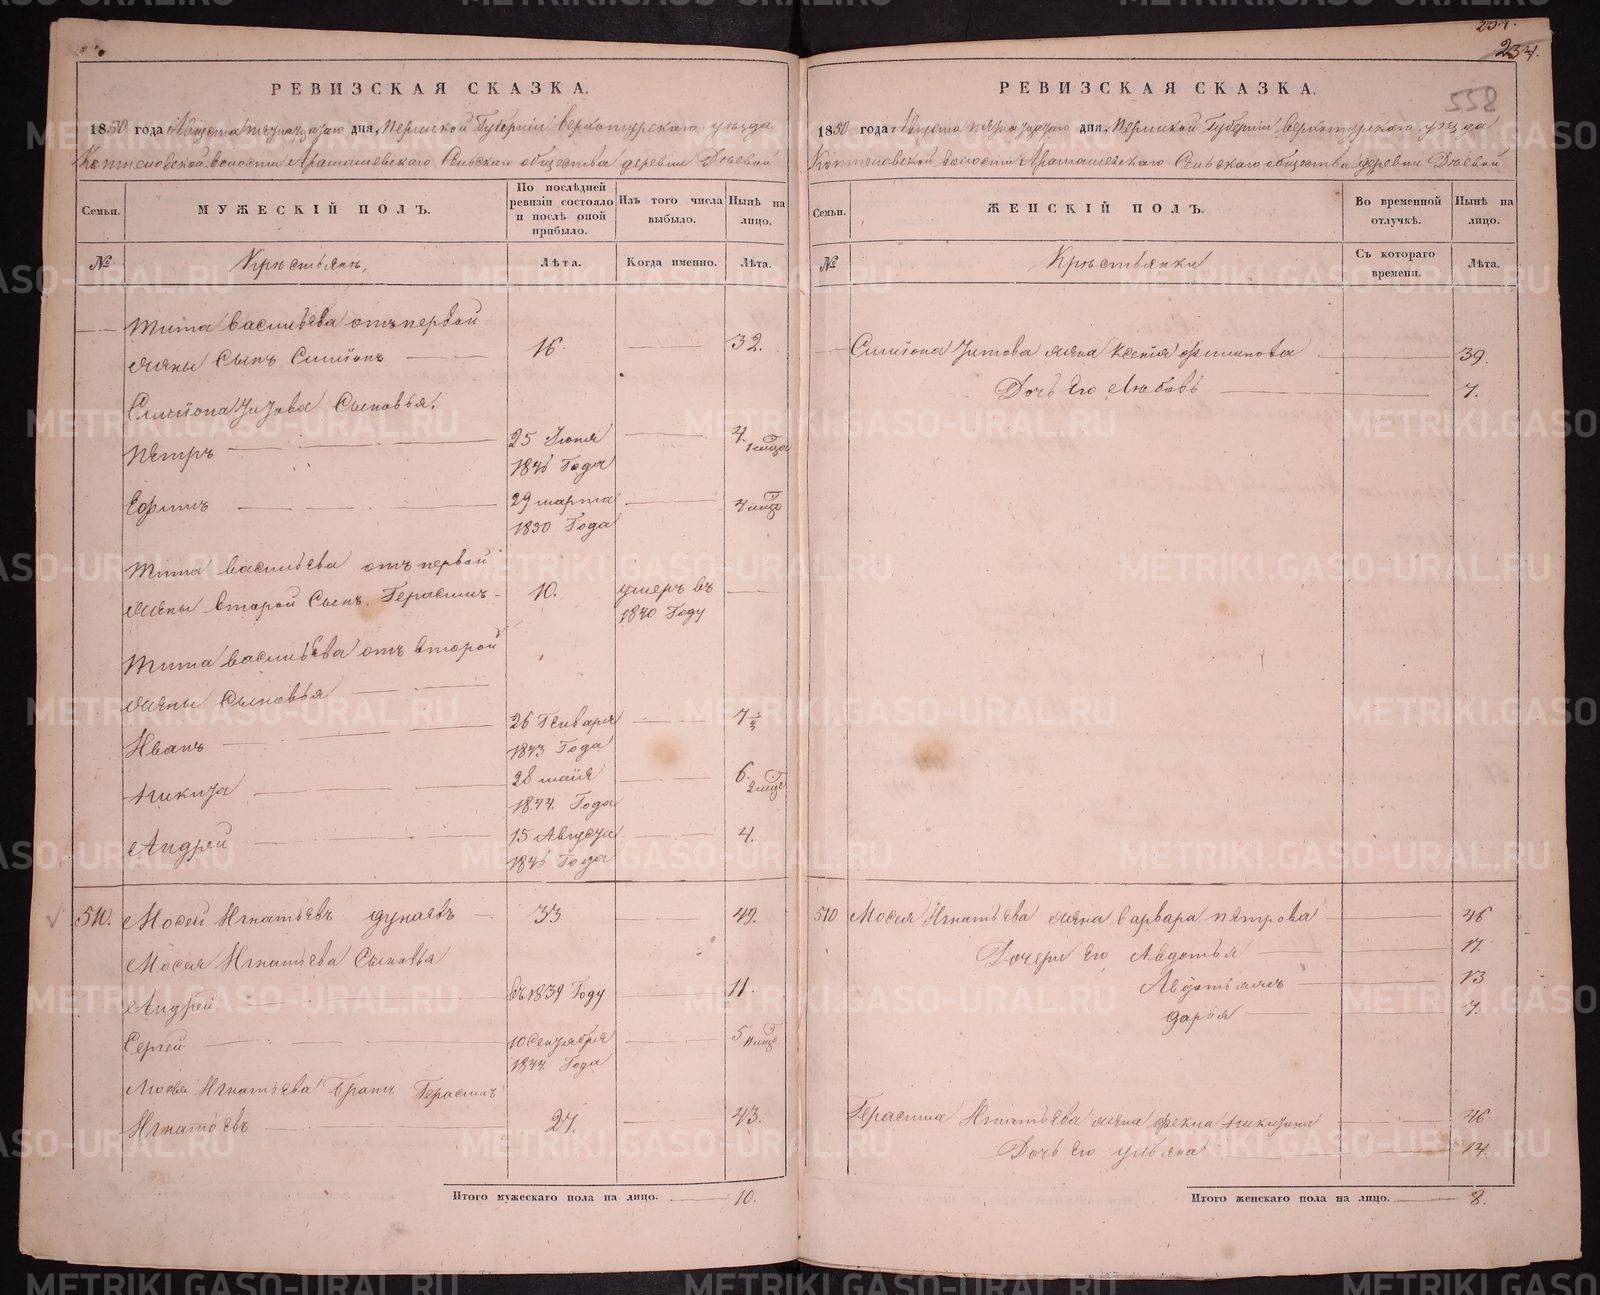 234.
РЕВИЗСКАЯ СКАЗКА.
1850 года Августа дня, Пермской Губерніи Верхотурскаго уѣзда
Коптеловской волости Арамашевскаго Сельскаго общества деревни
Семьи.
МУЖЕСКІЙ ПОЛЪ.
По послѣдней ревизіи состояло и послѣ оной прибыло.
Изъ того числа выбыло.
Нынѣ на лицо.
№
Крестьянъ,
Лѣта.
Когда именно.
Лѣта.
Тита Васильева отъ первой
жены Сынъ Симіонъ 16. 32.
Симіона Титова Сыновья.
Петръ 25 Іюня 1846 Года 4. 1 мѣсяц
Ефимъ 29 марта 1850 Года 4 мѣс
Тита Васильева отъ первой
жены второй Сынъ Герасимъ 10. умеръ въ 1840 Году
Тита Васильева отъ второй
жены Сыновья
Иванъ 26 Генваря 1843 Года 7 ½
Никита 28 маія 1844 Года 6. 2 мѣс
Андрей 15 Августа 1846 Года 4.
510. Мосей Игнатьевъ Дунаевъ 33 49.
Мосея Игнатьева Сыновья
Андрей въ 1839 Году 11.
Сергей 10 Сентября 1844 Года 5 11 мѣс
Мосея Игнатьева Братъ Герасимъ
Игнатьевъ 27. 43.
Итого мужескаго пола на лицо. 10.
234.
558
РЕВИЗСКАЯ СКАЗКА.
1850 года Августа дня, Пермской Губерніи Верхотурскаго уѣзда
Коптеловской волости Арамашевскаго Сельскаго общества деревни
Семьи.
ЖЕНСКІЙ ПОЛЪ.
Во временной отлучкѣ.
Нынѣ на лицо.
№
Крестьянки
Съ котораго времени.
Лѣта.
Симіона Титова жена Ксенія Филипова 39.
Дочь Его Любовь 7.
510 Мосея Игнатьева жена Варвара Петрова 46
Дочери Его Авдотья 17.
13
Дарья 7.
Герасима Игнатьева жена Фекла Никитина 46
Дочь Его Ульяна 14.
Итого женскаго пола на лицо. 8.
METRIKI.GASO-URAL.RU